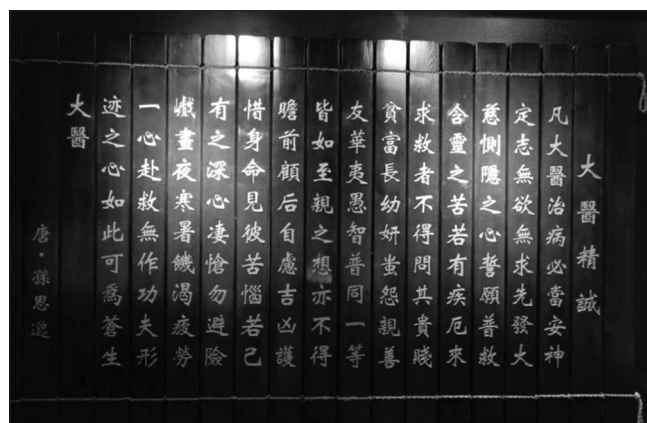 大醫精誠
凡大醫治病必當安神
定志無欲無求先發大
慈惻隱之心誓願普救
含靈之苦若有疾厄來
求救者不得問其貴賤
貧富長幼妍蚩怨親善
友華夷愚智普同一等
皆如至親之想亦不得
瞻前顧后自慮吉凶護
惜身命見彼苦惱若己
有之深心凄愴勿避險
巇晝夜寒暑饑渴疲勞
一心赴救無作功夫形
迹之心如此可爲蒼生
大醫
唐·孫思邈